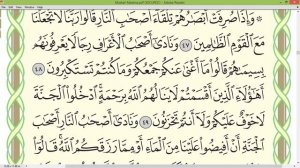 وَإِذَا صُرِفَتْ أَبْصَٰرُهُمْ تِلْقَآءَ أَصْحَٰبِ ٱلنَّارِ قَالُوا۟ رَبَّنَا لَا تَجْعَلْنَا
مَعَ ٱلْقَوْمِ ٱلظَّٰلِمِينَ ٤٧ وَنَادَىٰٓ أَصْحَٰبُ ٱلْأَعْرَافِ رِجَالًا يَعْرِفُونَهُم
بِسِيمَىٰهُمْ قَالُوا۟ مَآ أَغْنَىٰ عَنكُمْ جَمْعُكُمْ وَمَا كُنتُمْ تَسْتَكْبِرُونَ ٤٨
أَهَٰٓؤُلَآءِ ٱلَّذِينَ أَقْسَمْتُمْ لَا يَنَالُهُمُ ٱللَّهُ بِرَحْمَةٍ ٱدْخُلُوا۟ ٱلْجَنَّةَ
لَا خَوْفٌ عَلَيْكُمْ وَلَآ أَنتُمْ تَحْزَنُونَ ٤٩ وَنَادَىٰٓ أَصْحَٰبُ ٱلنَّارِ أَصْحَٰبَ
ٱلْجَنَّةِ أَنْ أَفِيضُوا۟ عَلَيْنَا مِنَ ٱلْمَآءِ أَوْ مِمَّا رَزَقَكُمُ ٱللَّهُ قَالُوٓا۟